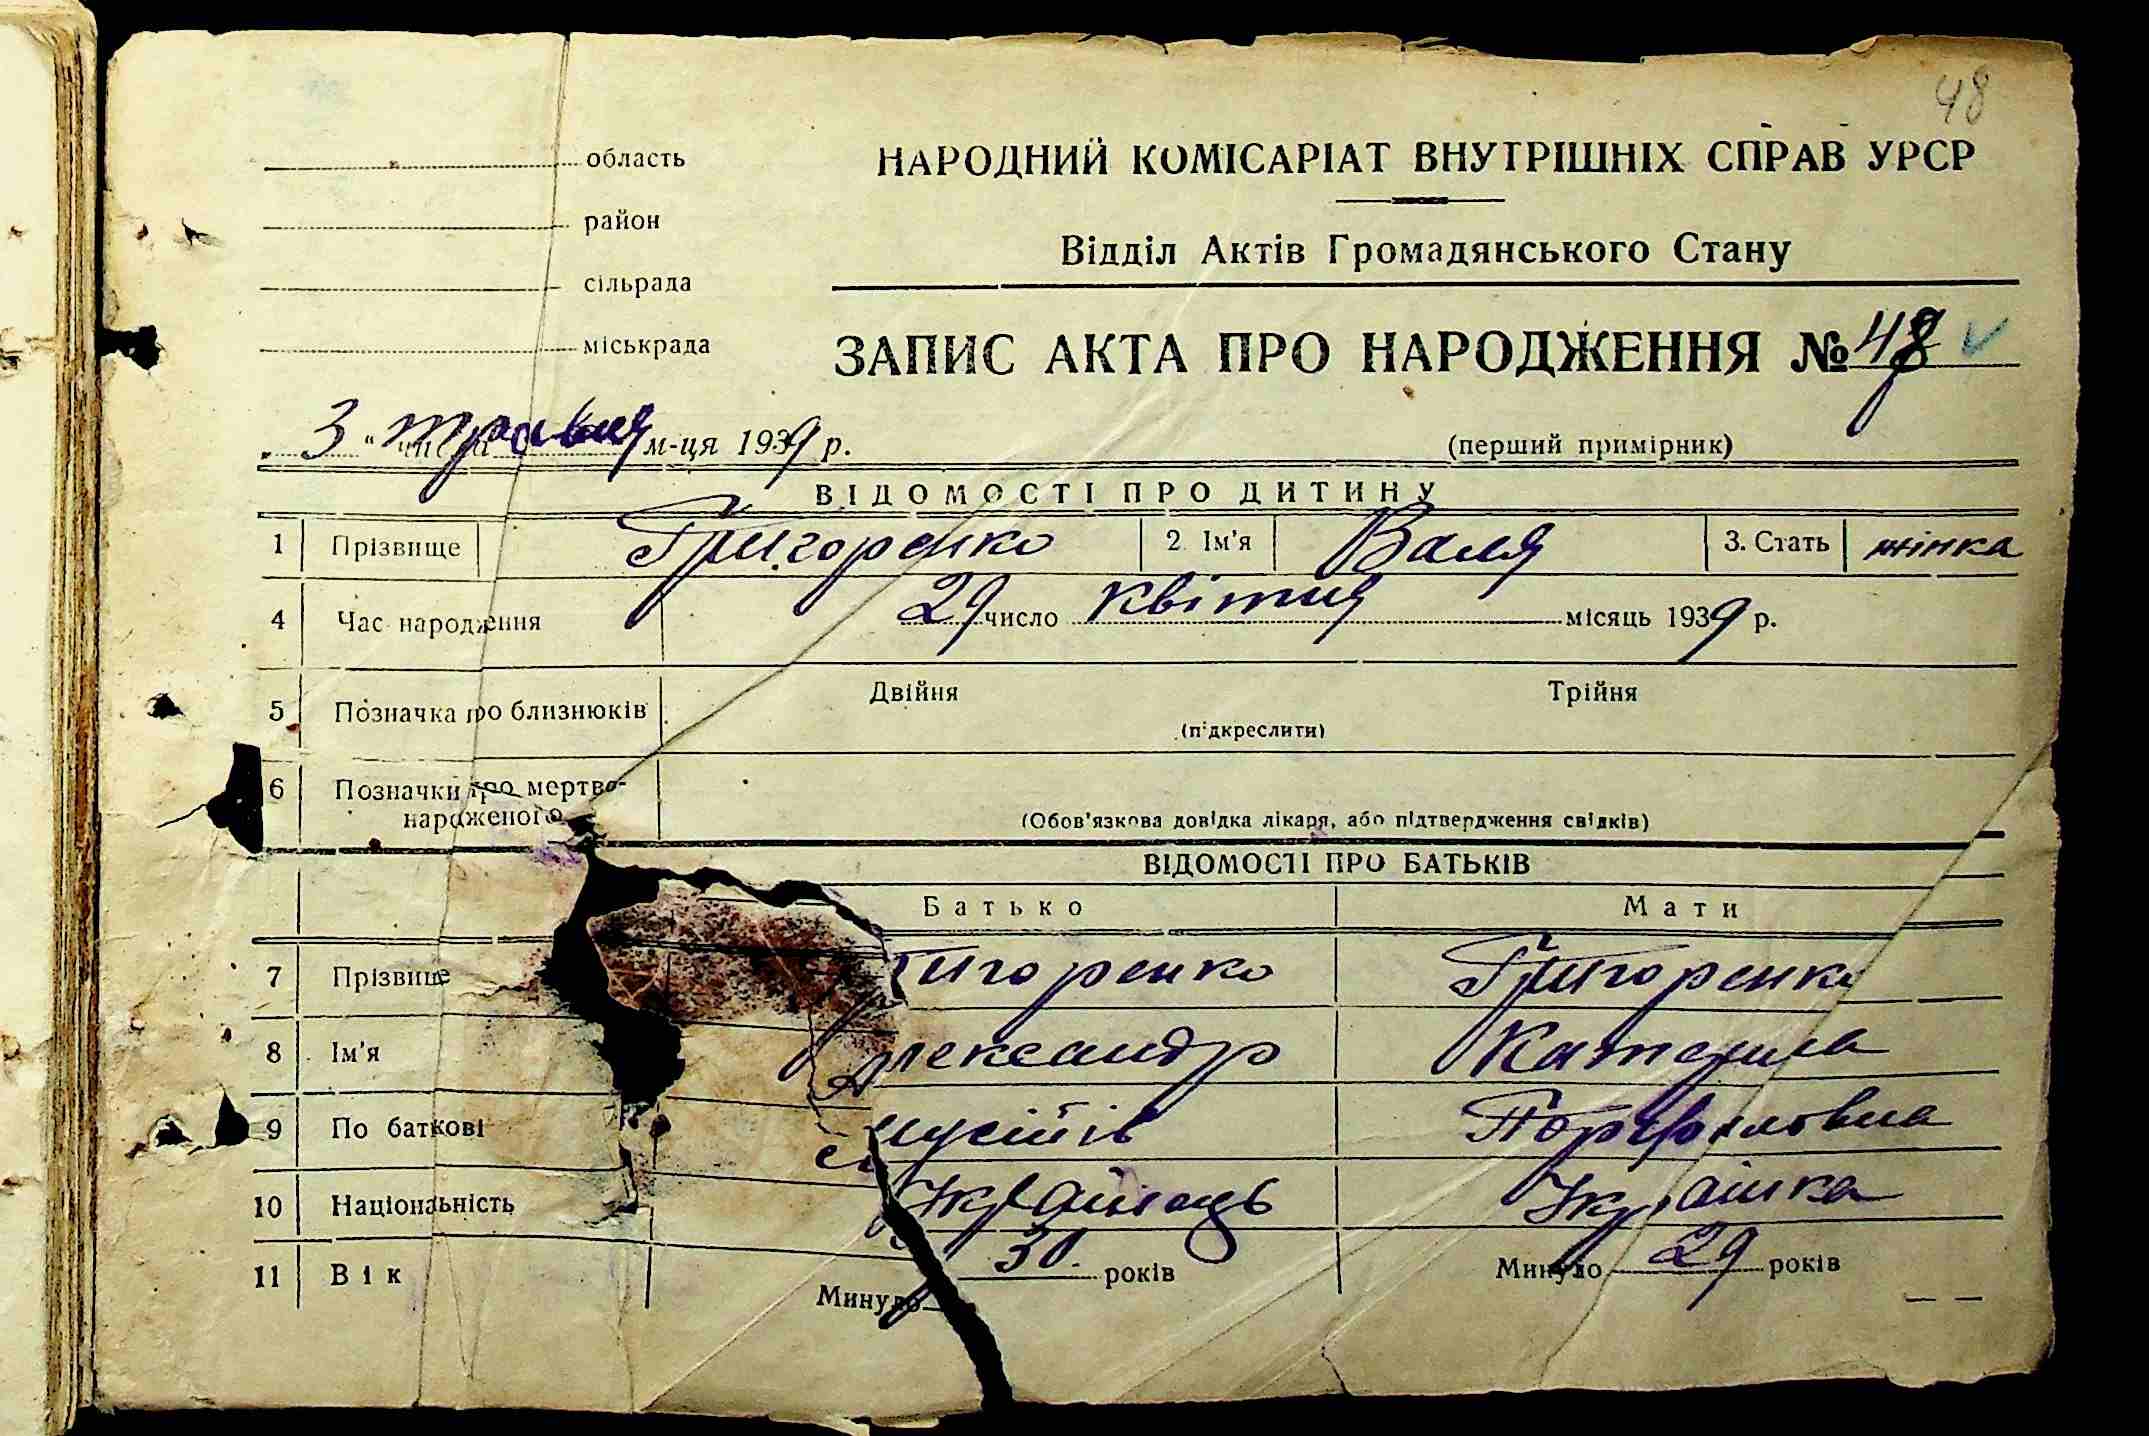 48
область
НАРОДНИЙ КОМІСАРІАТ ВНУТРІШНІХ СПРАВ УРСР
район
Відділ Актів Громадянського Стану
сільрада
міськрада
ЗАПИС АКТА ПРО НАРОДЖЕННЯ № 48
„ 3 “ числа травня м-ця 1939 р.
(перший примірник)
ВІДОМОСТІ ПРО ДИТИНУ
1 Прізвище Григоренко 2. Ім'я Валя 3. Стать жінка
4 Час народження 29 число квітня місяць 1939 р.
5 Позначка про близнюків Двійня Трійня
(підкреслити)
6 Позначки про мертво-
народженого (Обов'язкова довідка лікаря, або підтвердження свідків)
ВІДОМОСТІ ПРО БАТЬКІВ
Батько Мати
7 Прізвище Григоренко Григоренко
8 Ім'я Олександр Катерина
9 По баткові
10 Національність Українець Українка
11 Вік Минуло 30 років Минуло 29 років